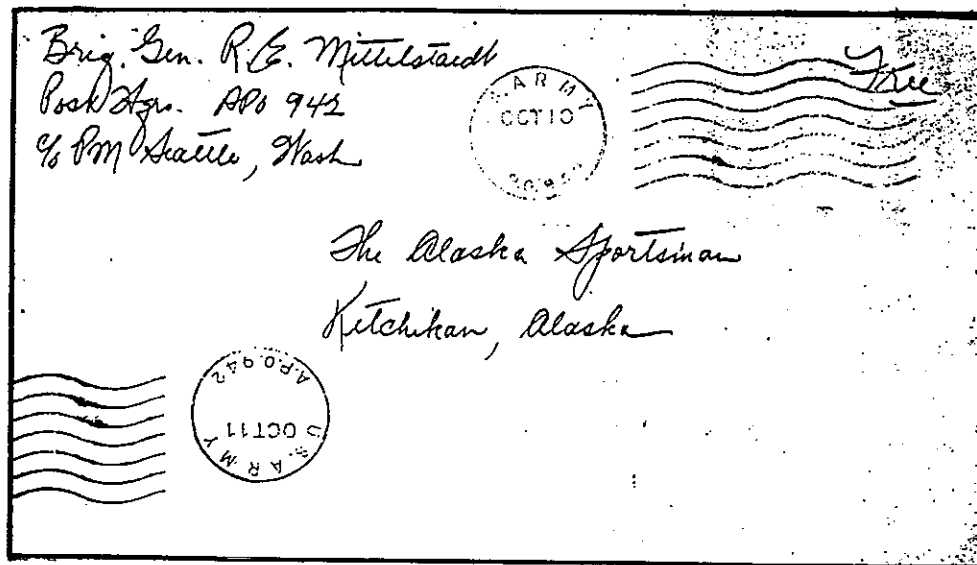 Brig. Gen. R.E. Mittelstaedt
Free
Post Hqrs. APO 942
c/o PM Seattle, Wash
ARMY
OCT 10
The Alaska Sportsman
Ketchikan, Alaska
A.P.O. 942
OCT 11
U.S. ARMY